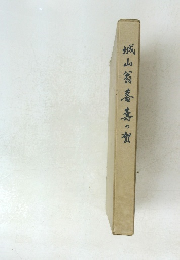 城山翁喜寿の賀